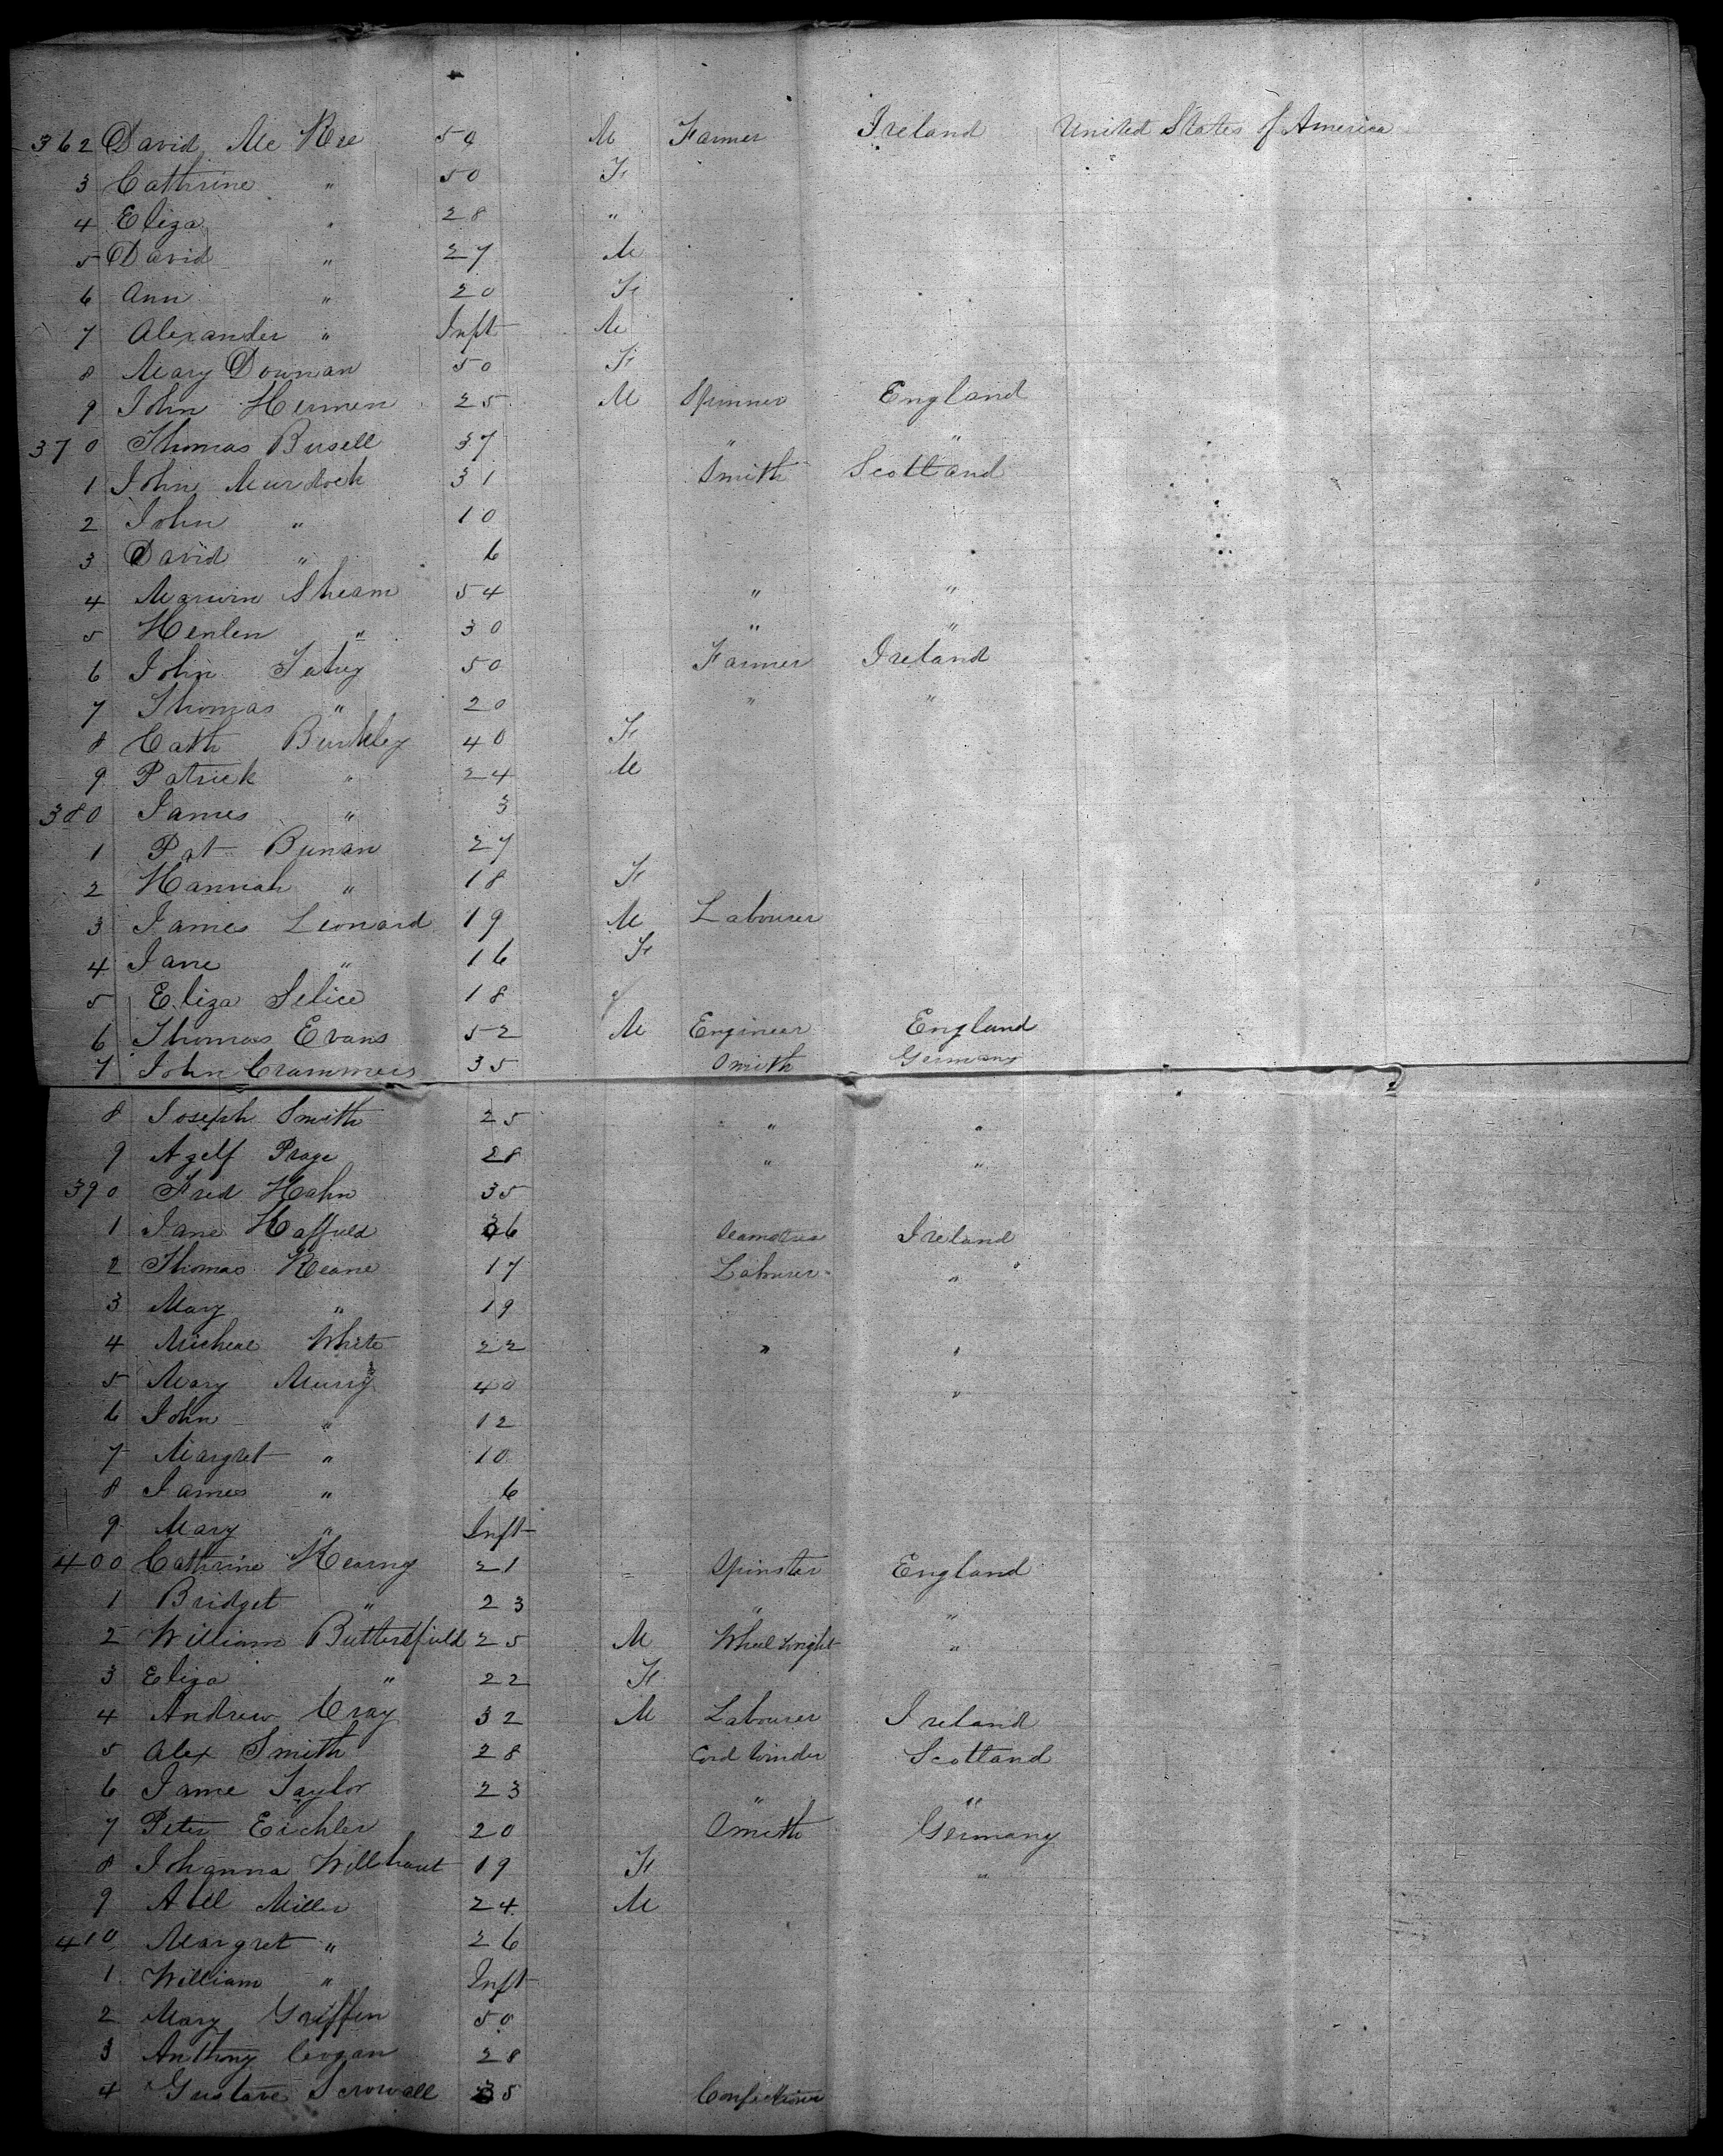 362 David Mc Kee 54 M Farmer Ireland United States of America
3 Cathrine " 50 F
4 Eliza " 28 "
5 David " 27 M
6 Ann " 20 F
7 Alexander " Inft M
8 Mary Downan 50 F
9 John Hermen 25 M Spinner England
370 Thomas Busell 37 " "
1 John Murdock 31 Smith Scotland
2 John " 10
3 David " 6
4 Sheam 54 " "
5 Henlen " 30 " "
6 John Fahey 50 Farmer Ireland
7 Thomas " 20 " "
8 Cath Burkley 40 F
9 Patrick " 24 M
380 James " 3
1 Pat Bunan 27
2 Hannah " 18 F
3 James Leonard 19 M Labourer
4 Jane " 16 F
5 Eliza Selice 18
6 Thomas Evans 52 M Engineer England
7 John Crammers 35 Smith Germany
8 Joseph Smith 25 " "
9 Azelf Prage 28 " "
390 Fred Hahn 35
1 Jane Haffield 36 Ireland
2 Thomas Keane 17 Labourer "
3 Mary " 19
4 Micheal White 22 " "
5 Mary Murry 40 "
6 John " 12
7 Margret " 10
8 James " 6
9 Mary " Inft
400 Cathrine Kearny 21 Spinster England
1 Bridget " 23 " "
2 William Butterfield 25 M Wheel wright "
3 Eliza " 22 F
4 Andrew Cray 32 M Labourer Ireland
5 Alex Smith 28 Cord winder Scotland
6 Jame Taylor 23 " "
7 Peter Eichler 20 Smith Germany
8 Johanna Willhaut 19 F "
9 Abll Miller 24 M
410 Margret " 26
1 William " Inft
2 Mary Griffin 50
3 Anthony Cogan 28
4 Gustave Scrowall 35 Confectioner